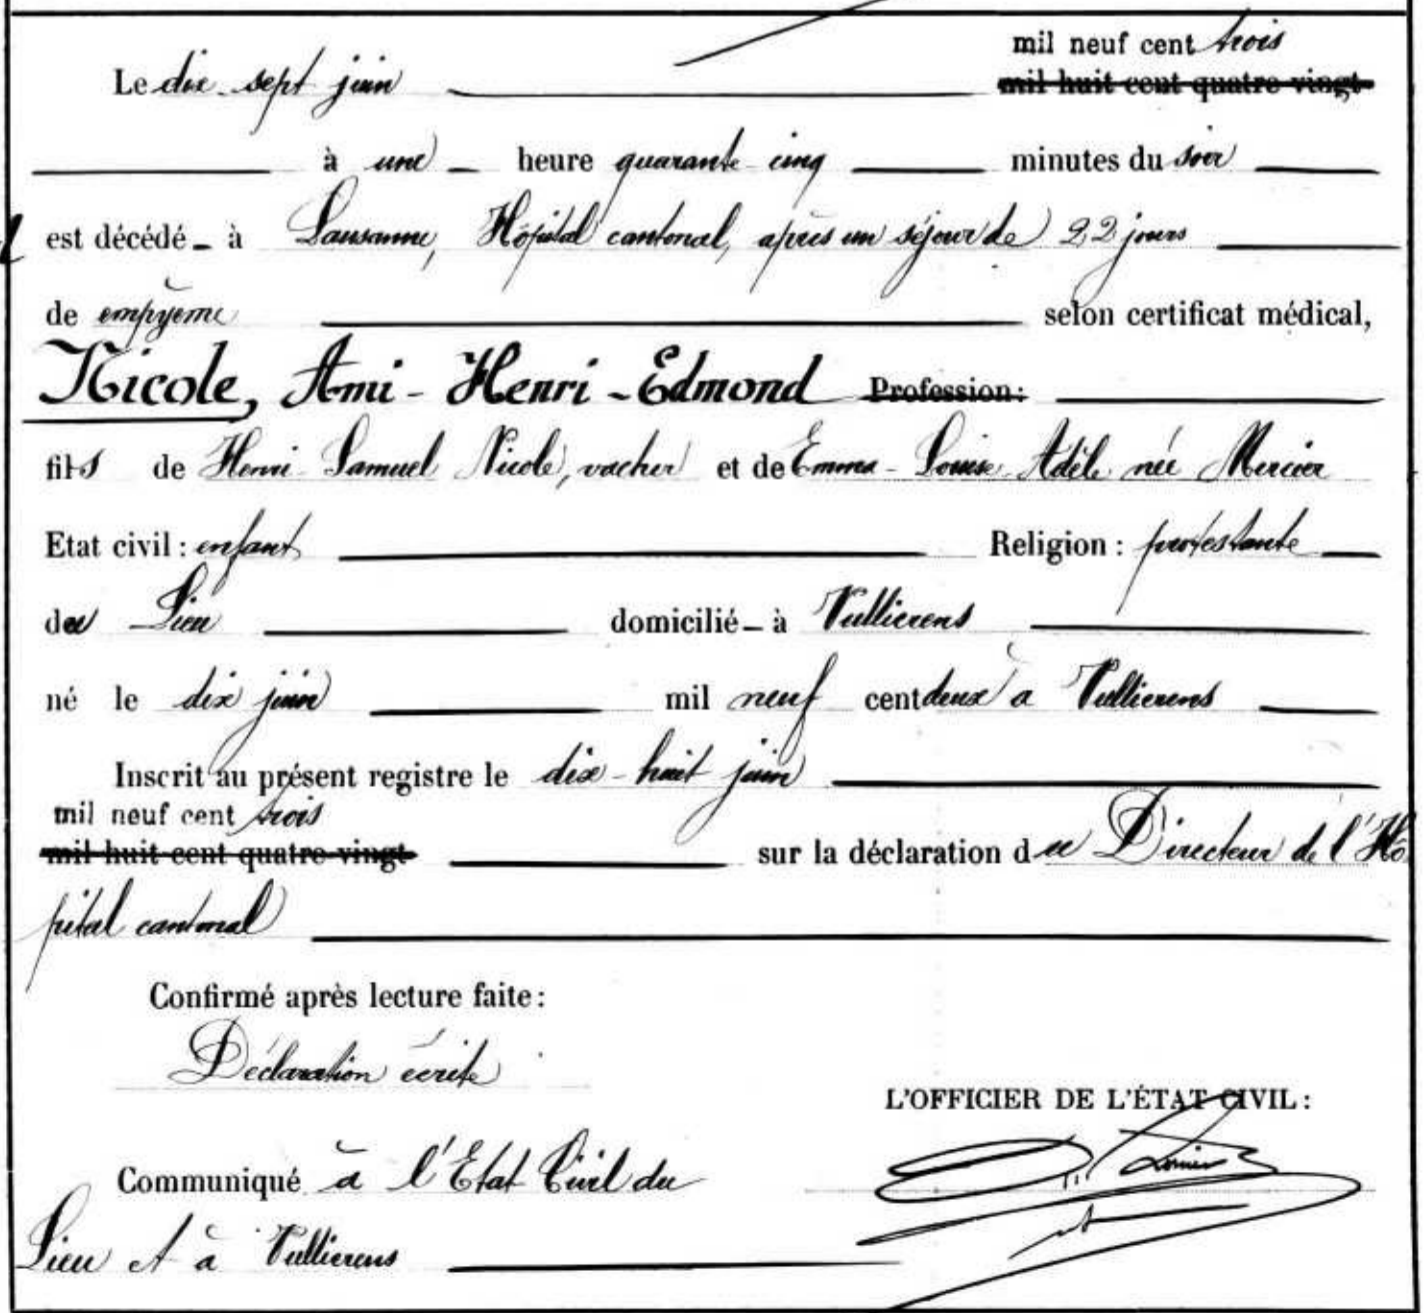 mil neuf cent trois
Le dix-sept juin mil huit cent quatre-vingt-
à une heure quarante cinq minutes du soir
est décédé à Lausanne, Hôpital cantonal, après un séjour de 22 jours
de empyème selon certificat médical,
Nicole, Ami-Henri-Edmond Profession:
fils de Henri-Samuel Nicole, vacher et de Emma-Louise-Adèle née Mercier
Etat civil: enfant Religion: protestante
du Lieu domicilié à Vullierens
né le dix juin mil neuf cent deux à Vullierens
Inscrit au présent registre le dix-huit juin
mil neuf cent trois
mil huit cent quatre-vingt- sur la déclaration du Directeur de l'Hô
pital cantonal
Confirmé après lecture faite:
Déclaration écrite
L'OFFICIER DE L'ÉTAT CIVIL:
Communiqué à l'Etat Civil du
Lieu et à Vullierens